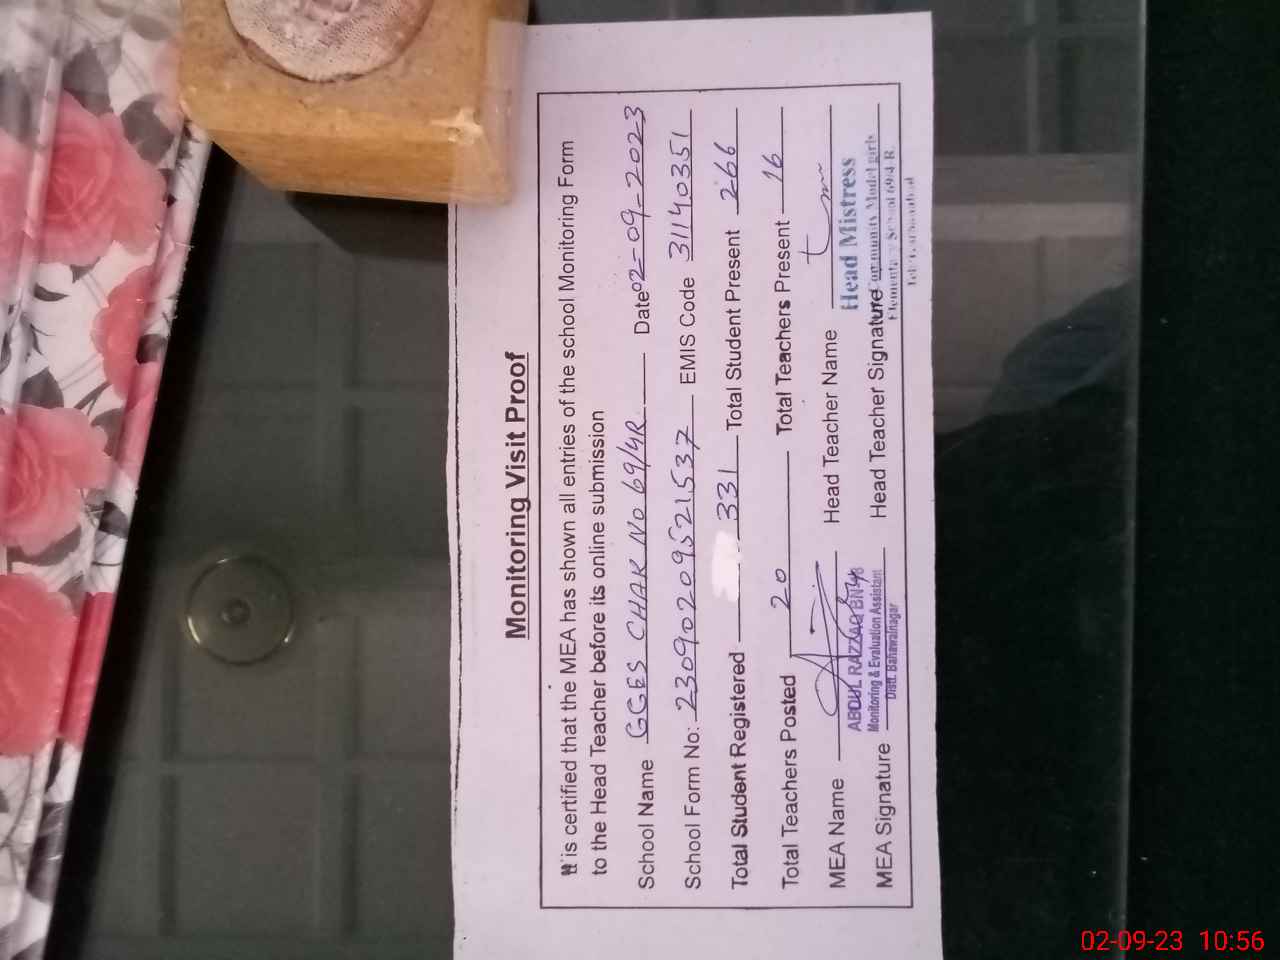 Monitoring Visit Proof
It is certified that the MEA has shown all entries of the school Monitoring Form
to the Head Teacher before its online submission
School Name GGES CHAK No 69/4R Date 02-09-2023
School Form No: 23090209521537 EMIS Code 31140351
Total Student Registered 331 Total Student Present 266
Total Teachers Posted 20 Total Teachers Present 16
MEA Name Head Teacher Name
ABDUL RAZZAQ Head Mistress
Monitoring & Evaluation Assistant Community Model girls
MEA Signature Head Teacher Signature
Distt. Bahawalnagar Elementary School 69/4 R
02-09-23 10:56